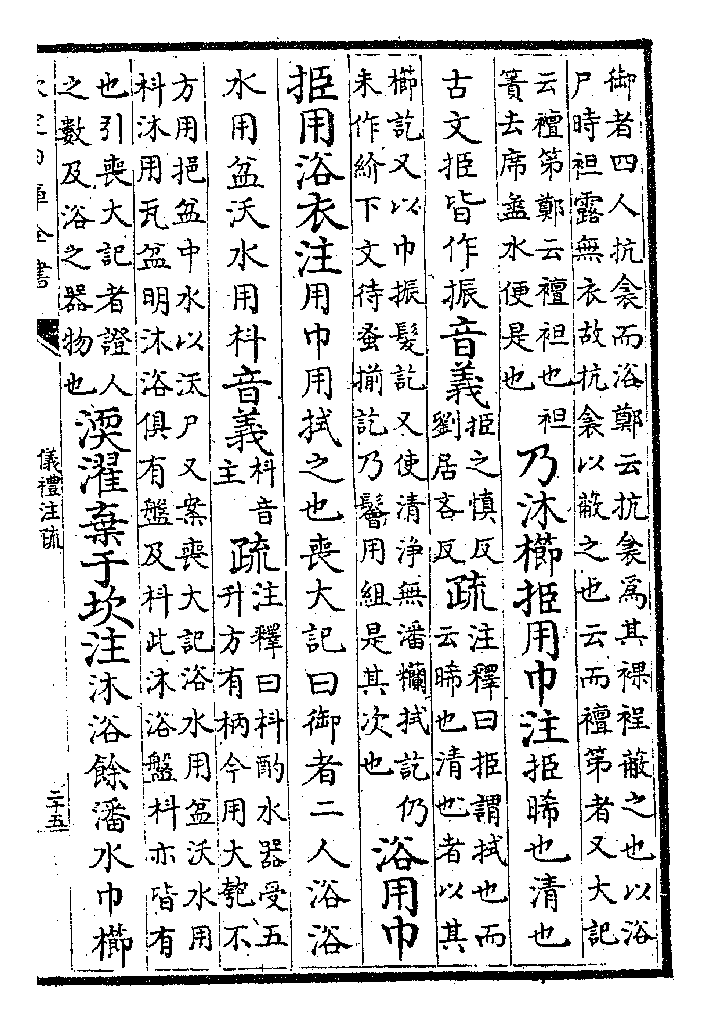 御者四人抗衾而浴鄭云抗衾爲其裸裎蔽之也以浴
尸時袒露無衣故抗衾以蔽之也云而襢第者又大記
云襢第鄭云襢袒也袒
簀去席盝水便是也
乃沐櫛挋用巾注挋晞也清也
古文挋皆作振音義
挋之慎反
劉居吝反
疏
注釋曰挋謂拭也而
云晞也清也者以其
櫛訖又以巾振髮訖又使清淨無潘糷拭訖仍
未作紒下文待蚤揃訖乃鬠用組是其次也
浴用巾
挋用浴衣注用巾用拭之也喪大記曰御者二人浴浴
水用盆沃水用枓音義
枓音
主
疏
注釋曰枓酌水器受五
升方有柄今用大匏不
方用挹盆中水以沃尸又案喪大記浴水用盆沃水用
枓沐用瓦盆明沐浴俱有盤及枓此沐浴盤枓亦皆有
也引喪大記者證人
之數及浴之器物也
渜濯棄于坎注沐浴餘潘水巾櫛
欽定四庫全書
儀禮注疏
二十五